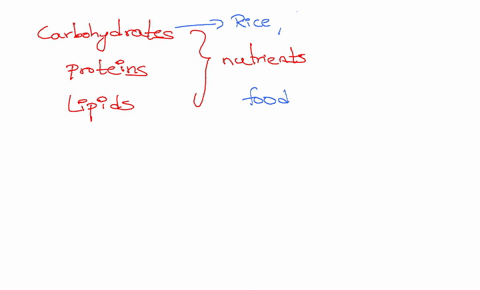 Carbohydrates → Rice,
proteins } nutrients
Lipids food